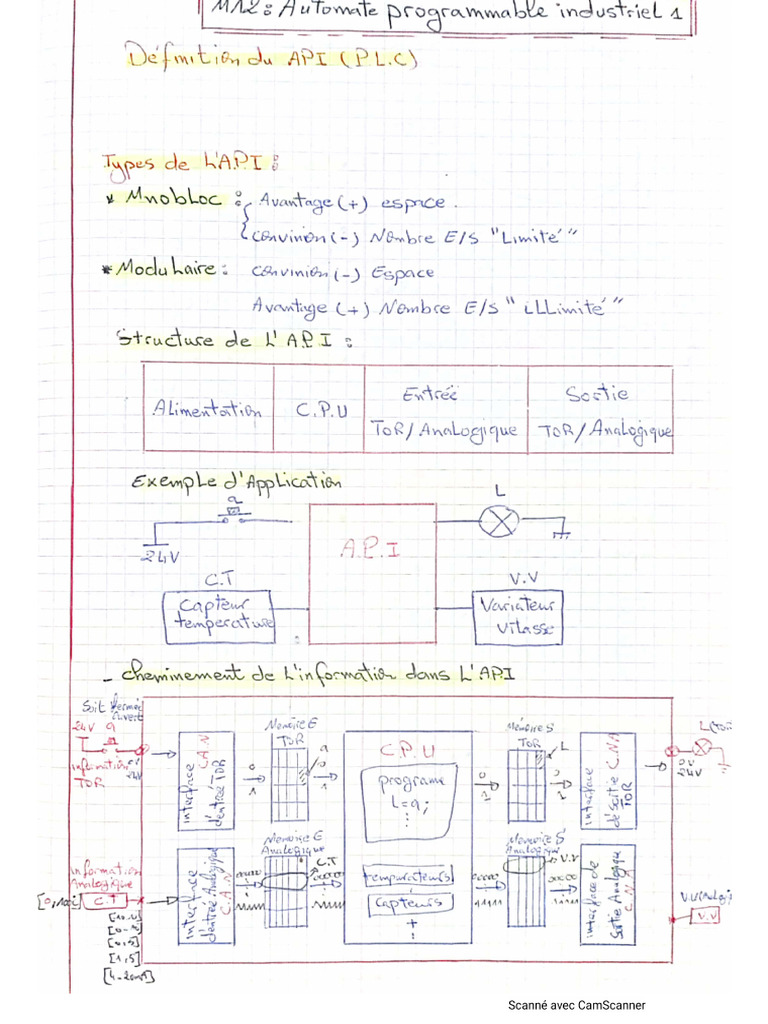 M12: Automate programmable industriel 1
Définition du API (P.L.C)
Types de L'A.P.I :
* MnobLoc : Avantage (+) espace.
convinion (-) Nombre E/S "Limité"
* ModuLaire : convinion (-) Espace
Avantage (+) Nombre E/S "iLLimité"
Structure de L'A.P.I :
ALimentation C.P.U Entrée Sortie
ToR/Analogique ToR/Analogique
Exemple d'Application
a L
24V
A.P.I
C.T V.V
Capteur Variateur
temperature vitasse
- cheminement de L'information dans L'API
Soit fermée
ouvert
24V a
information
TOR
interface
d'entrée TOR
C.A.N
0
1
Memoire E
TOR
a
0
1
C.P.U
programe
L=a;
0
1
Mémoire S
TOR
L
0
1
interface
de sortie C.N.A
TOR
0V
24V
information
Analogique
[0,10v] C.T
[0,5]
[1,5]
[4-20mA]
interface
d'entrée Analogique
C.A.N
00000
11111
Memoire E
Analogique
C.T
00000
11111
temperateur(s)
capteurs
+
00000
11111
Memoire S
Analogique
V.V
0000
1111
interface de
Sortie Analogique
C.N.A
V.V
Scanné avec CamScanner